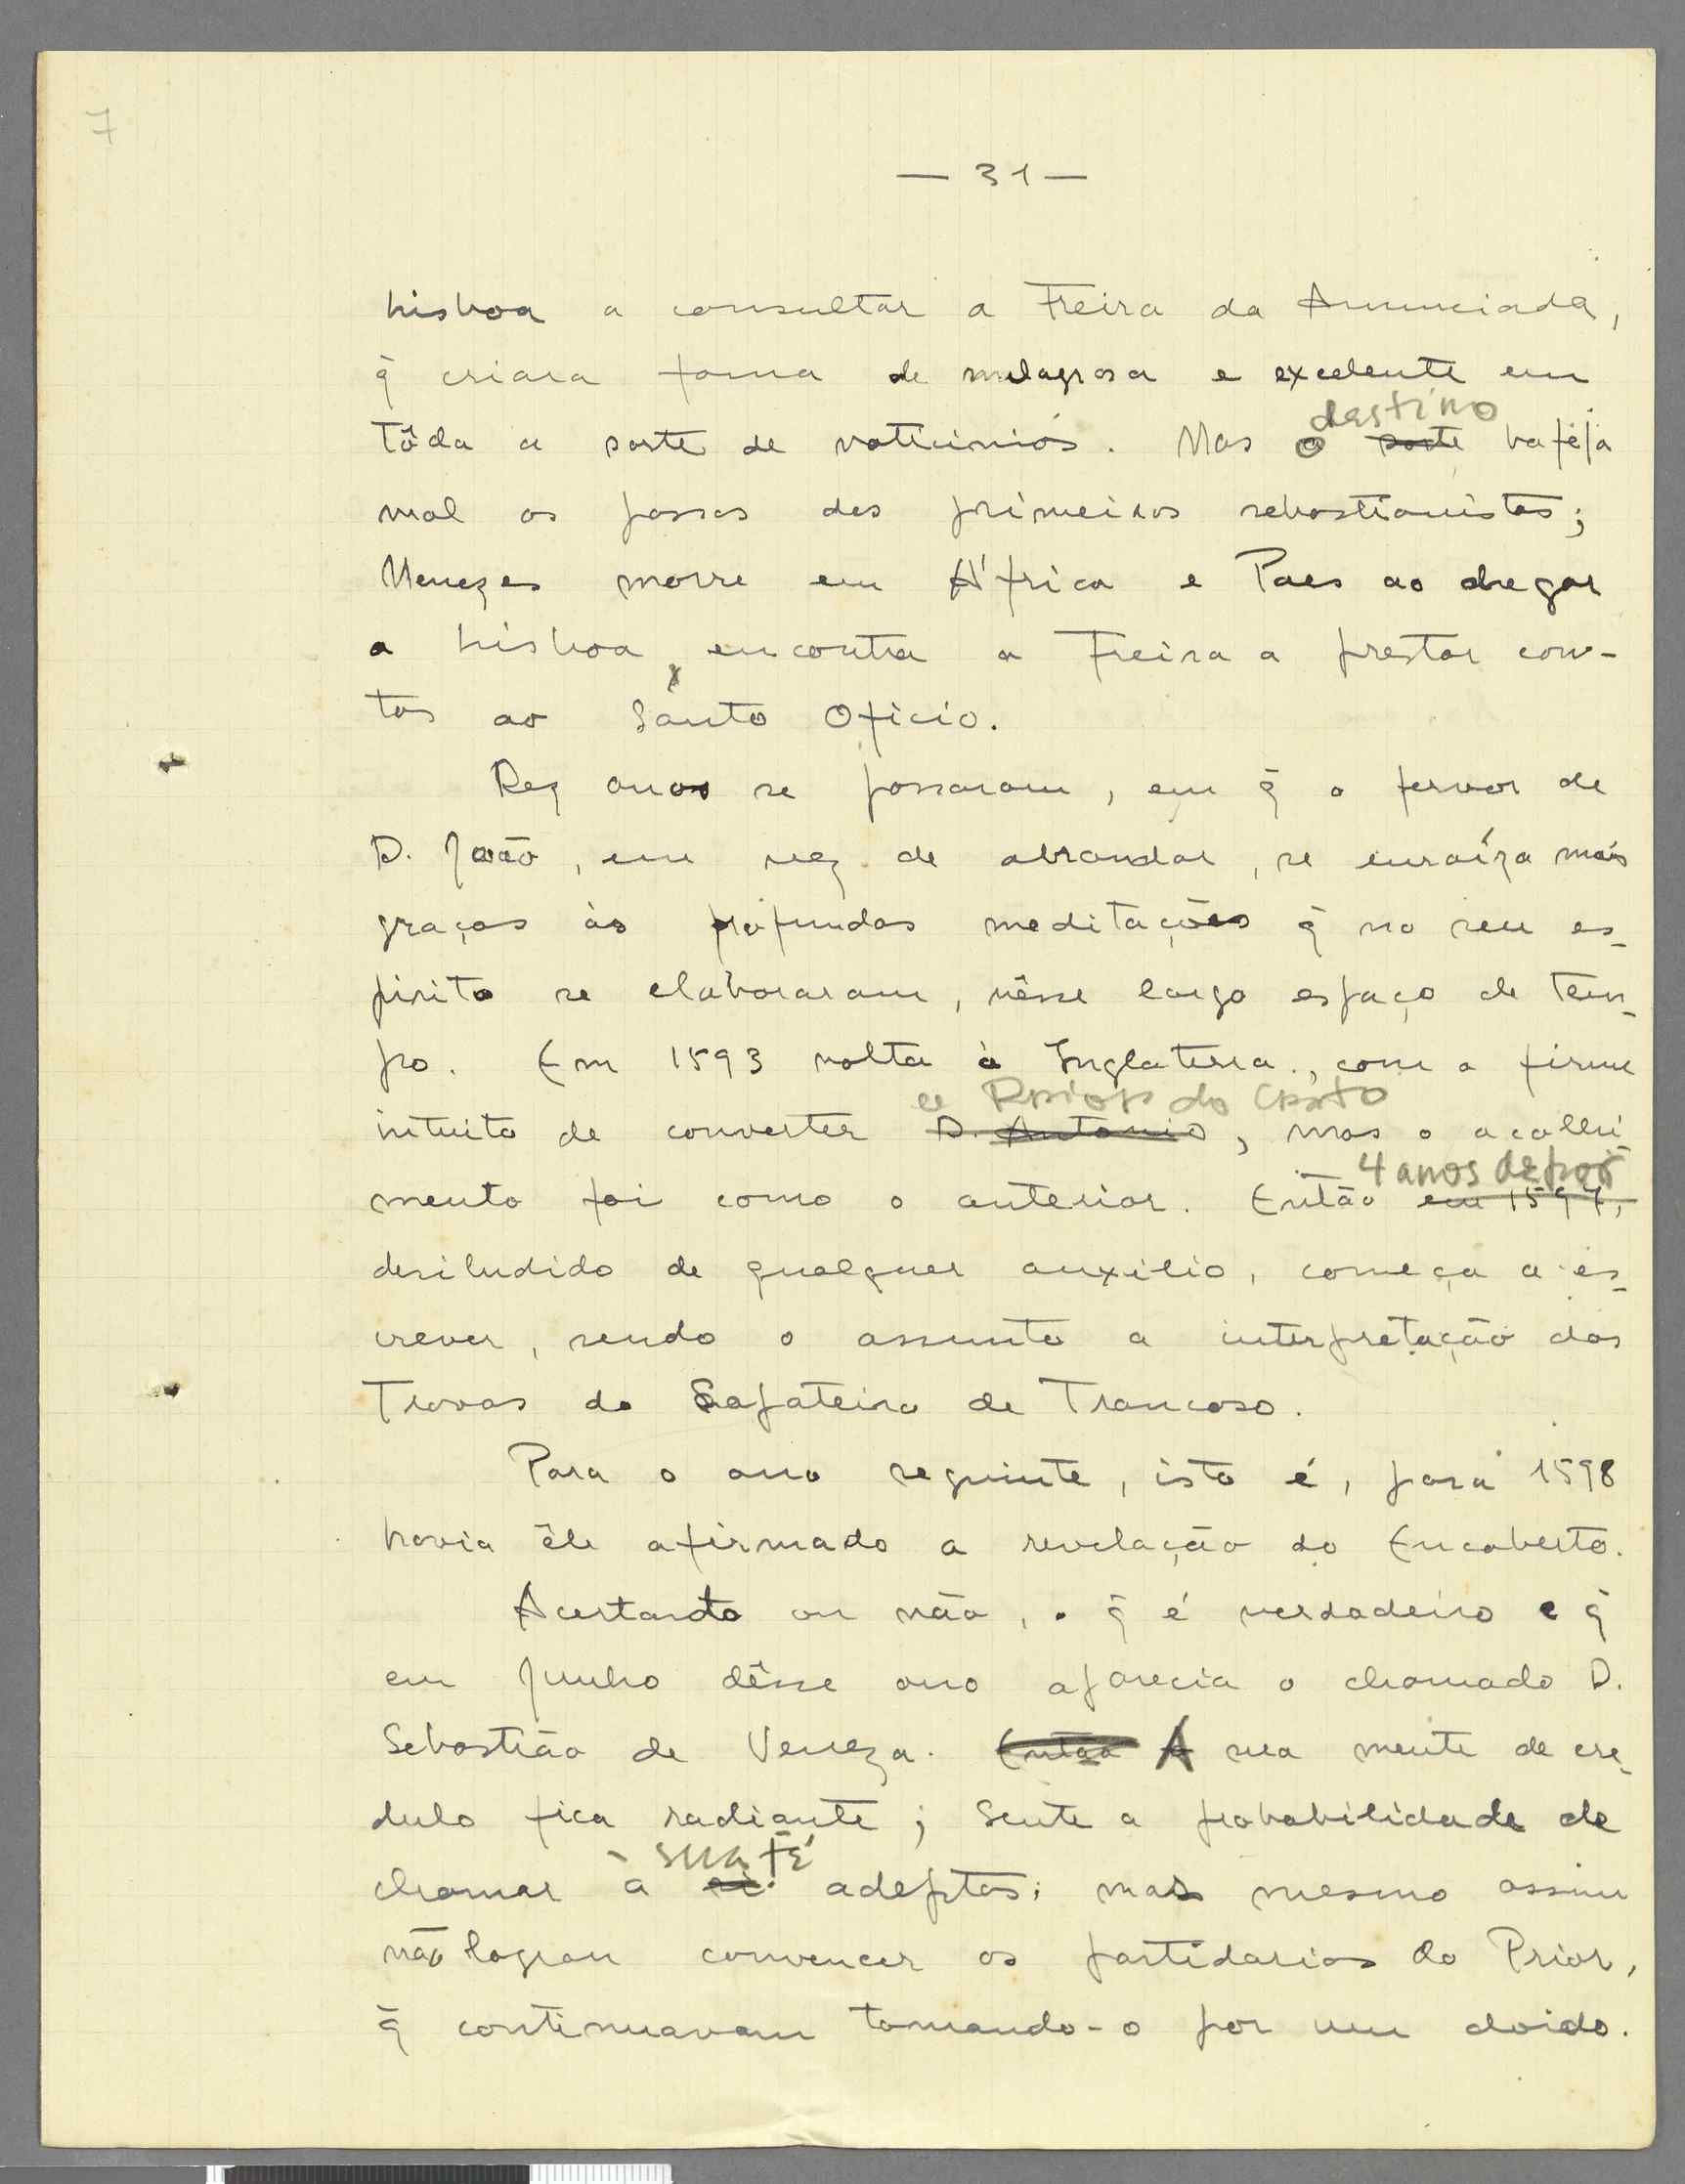 7
— 31 —
Lisboa a consultar a Freira da Anunciada,
q̃ criara fama de milagrosa e excelente em
destino
tôda a sorte de vaticinios. Mas o sorte bafeja
mal os passos dos primeiros sebastianistas;
Menezes morre em África e Paes ao chegar
a Lisboa, encontra a Freira a prestar con-
tas ao Santo Oficio.
Dez anos se passaram, em q̃ o fervor de
D. João, em vez de abrandar, se enraíza mais
graças às profundas meditações q̃ no seu es-
pirito se elaboraram, nêsse largo espaço de tem-
po. Em 1593 volta à Inglaterra, com o firme
o Prior do Crato
intuito de converter D. Antonio, mas o acolhi-
4 anos depois
mento foi como o anterior. Então em 1597,
desiludido de qualquer auxilio, começa a es-
crever, sendo o assunto a interpretação das
Trovas do Sapateiro de Trancoso.
Para o ano seguinte, isto é, para 1598
havia êle afirmado a revelação do Encoberto.
Acertando ou não, o q̃ é verdadeiro e q̃
em Junho dêsse ano aparecia o chamado D.
Sebastião de Veneza. Então A sua mente de cre-
dulo fica radiante; sente a probabilidade de
sua fé
chamar à si adeptos; mas mesmo assim
não lograu convencer os partidarios do Prior,
q̃ continuavam tomando-o por um doido.